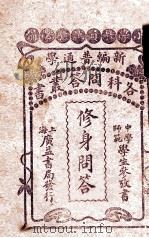 新編普通學
各科問答叢書
中學師範學生參攷書
修身問答
上海廣益書局發行